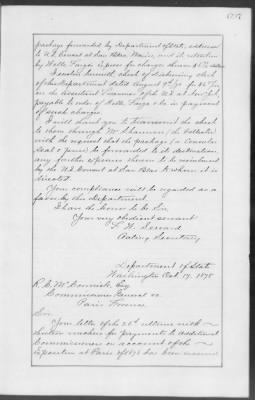 package forwarded by Department of State, address
to U.S. Consul at San Blas, Mexico, and its retention
by Wells Fargo Express for charges thereon
I enclose herewith check of disbursing clerk
of this Department dated August
on the Assistant Treasurer of the U.S. at New York
payable to order of Wells Fargo & Co in payment
of such charges.
I will thank you to transmit the check
to them through Mr Shannon, the Collector
with the request that the package (a Consular
Seal & press) be forwarded to its destination
any further expenses thereon to be reimbursed
by the U.S. Consul at San Blas to whom it is
directed.
Your compliance will be regarded as a
favor by this Department.
I have the honor to be Sir,
Your very obedient servant
F. W. Seward
Acting Secretary
Department of State
Washington Oct. 17. 1878
R. C. McCormick, Esq
Commissioner General &c
Paris France
Sir:
Your letter of the 20th ultimo with
vouchers for payments to additional
Commissioners on account of the
Exposition at Paris of 1878 has been received